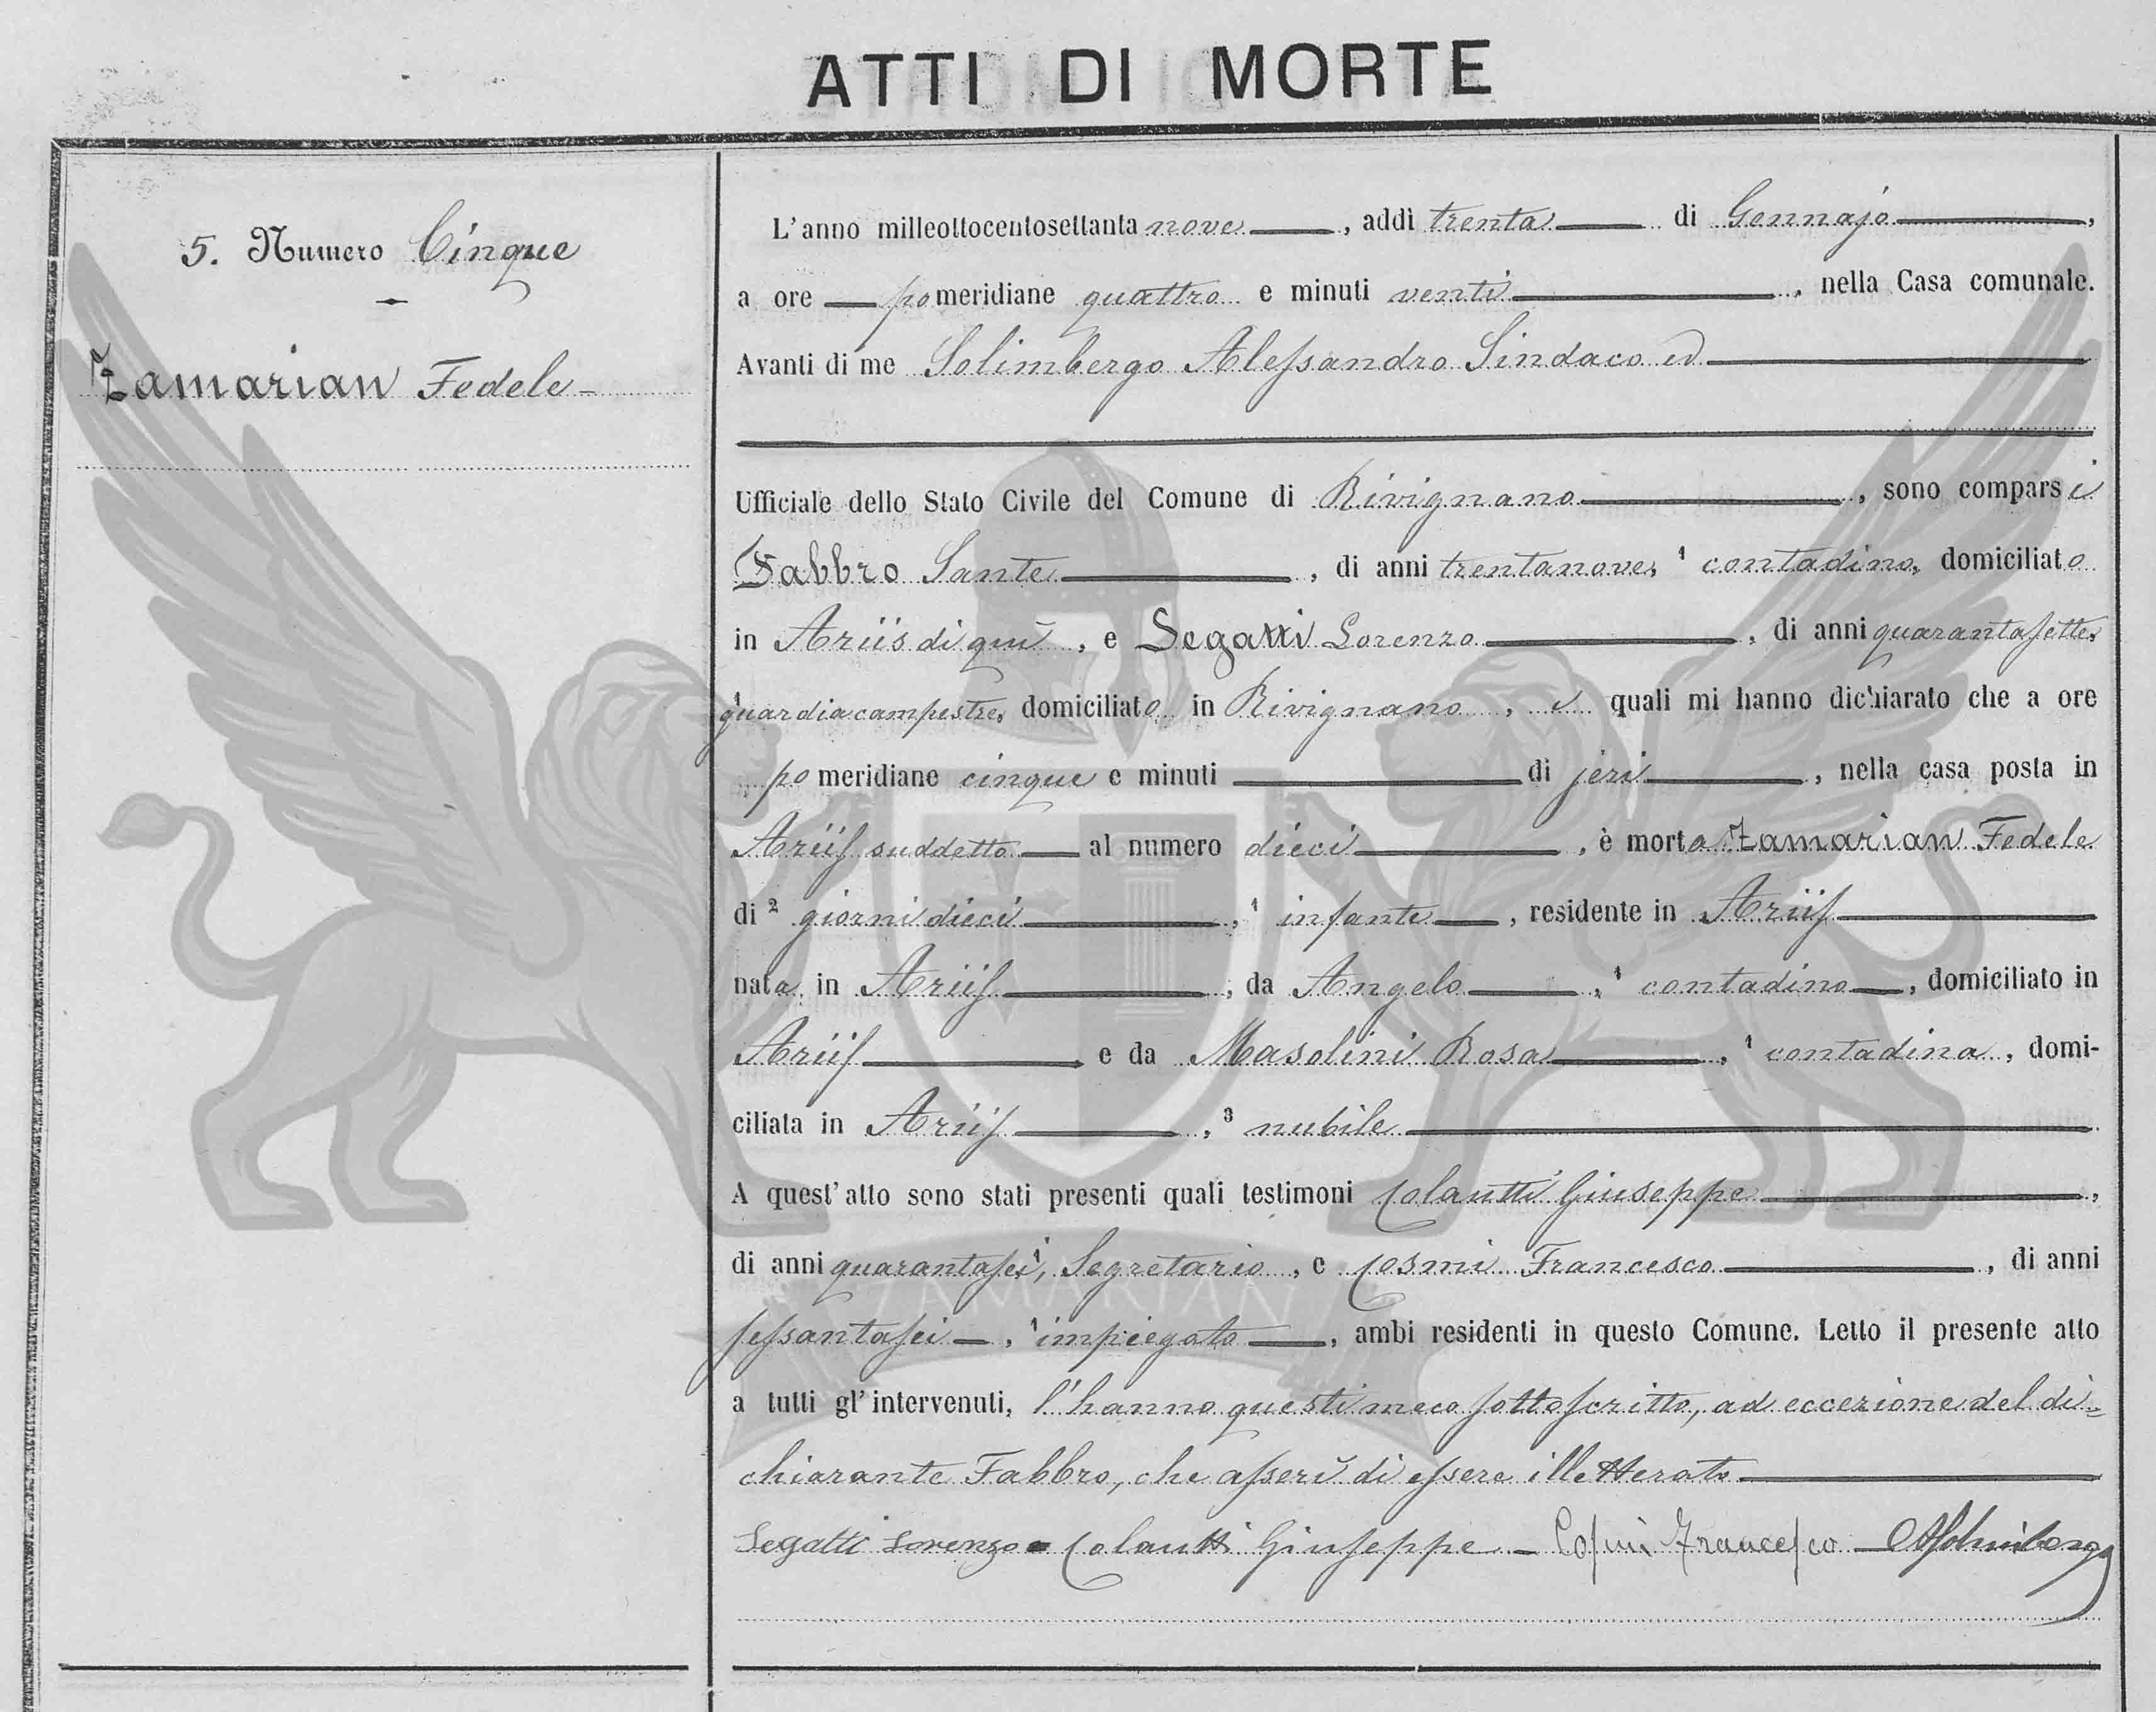 ATTI DI MORTE
5. Numero Cinque
Zamarian Fedele
L'anno milleottocentosettanta nove, addì trenta di Gennajo,
a ore pomeridiane quattro e minuti venti, nella Casa comunale.
Avanti di me Solimbergo Alessandro Sindaco ed
Ufficiale dello Stato Civile del Comune di Rivignano, sono comparsi
Fabbro Sante, di anni trentanove, 1 contadino, domiciliato
in Ariis di quì, e Segatti Lorenzo, di anni quarantasette,
1 guardia campestre, domiciliato in Rivignano, i quali mi hanno dichiarato che a ore
pomeridiane cinque e minuti di jeri, nella casa posta in
Ariis suddetto al numero dieci, è morta Zamarian Fedele
di 2 giorni dieci, 1 infante, residente in Ariis
nata in Ariis, da Angelo, 1 contadino, domiciliato in
Ariis e da Masolini Rosa, 1 contadina, domi-
ciliata in Ariis, 3 nubile
A quest'atto sono stati presenti quali testimoni Colautti Giuseppe,
di anni quarantasei, 1 Segretario, e Cosmi Francesco, di anni
sessantasei, 1 impiegato, ambi residenti in questo Comune. Letto il presente atto
a tutti gl'intervenuti, l'hanno questi meco sottoscritto, ad eccezione del di=
chiarante Fabbro, che asserì di essere illetterato
Segatti Lorenzo - Colautti Giuseppe - Cosmi Francesco - ASolimbergo
ZAMARIAN